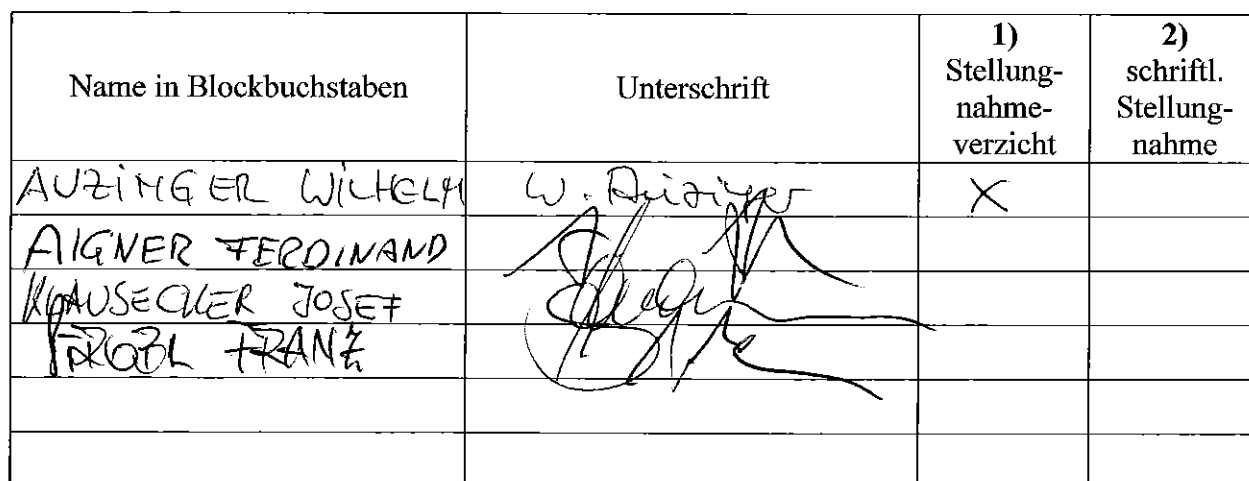 Name in Blockbuchstaben
Unterschrift
1)
Stellung-
nahme-
verzicht
2)
schriftl.
Stellung-
nahme
AUZINGER WILHELM W. Auzinger X
AIGNER FERDINAND
KLAUSECKER JOSEF
FRANZ